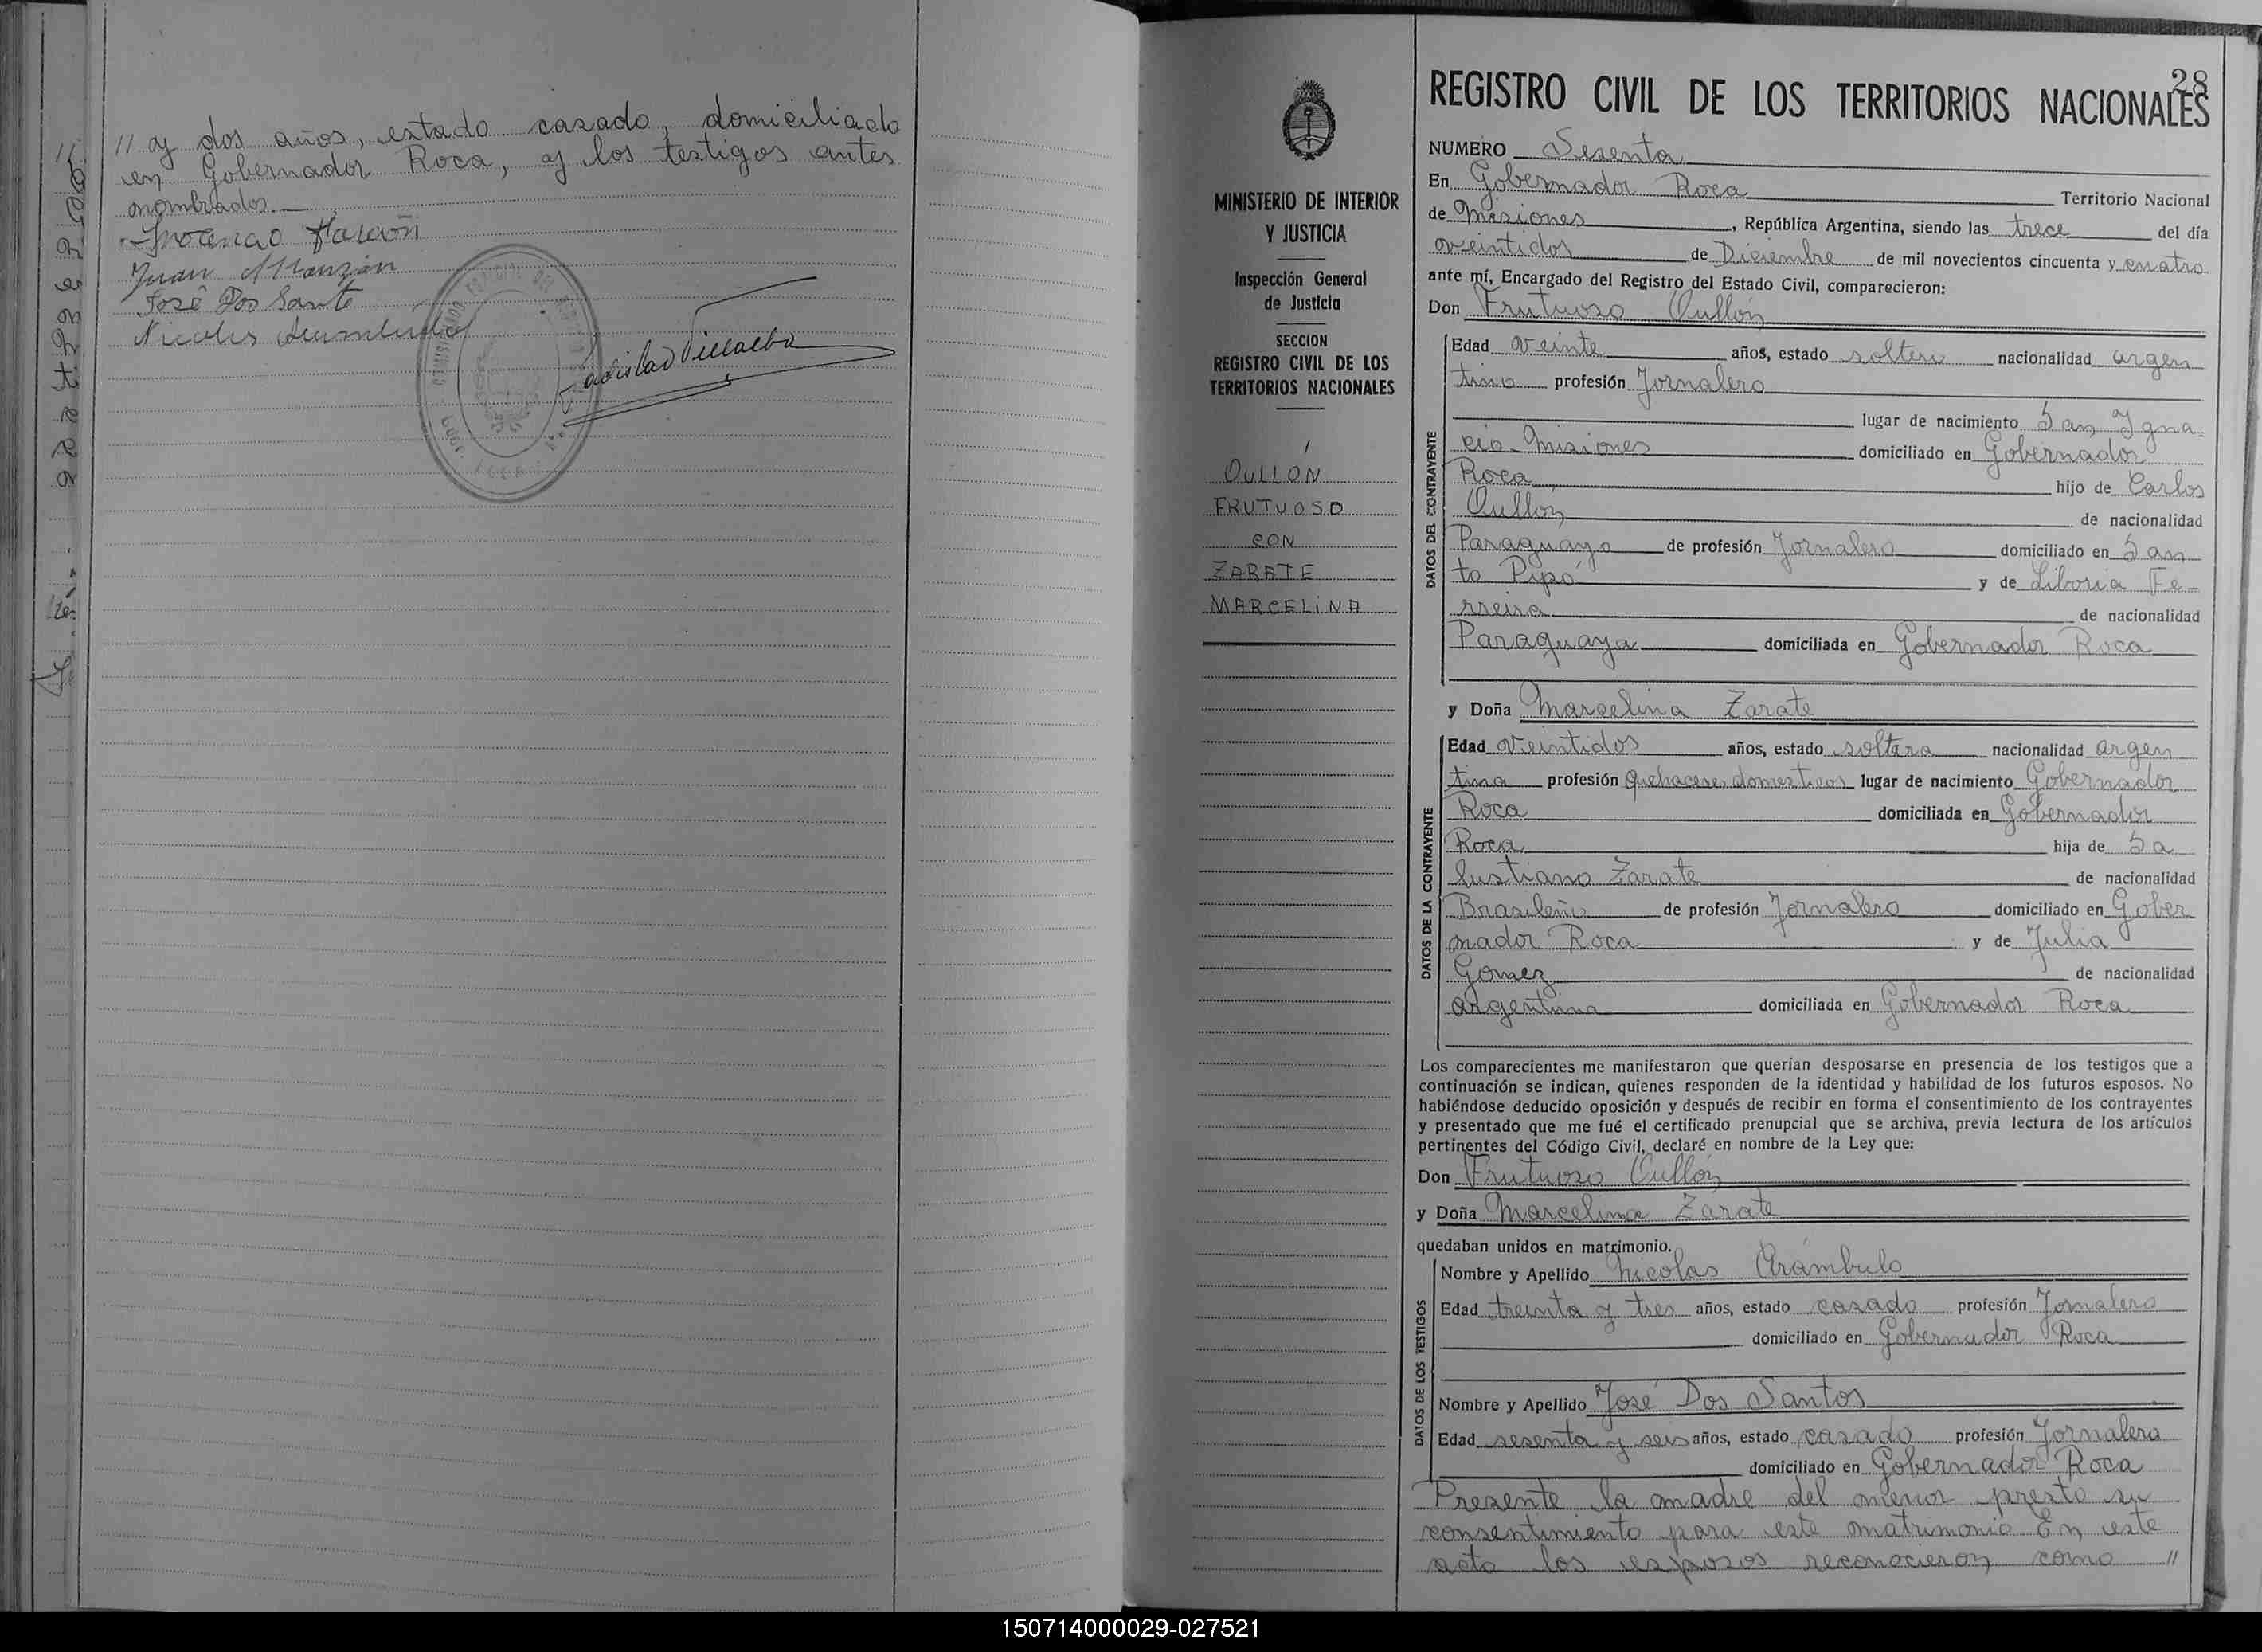 // y dos años, estado casado, domiciliado
en Gobernador Roca, y los testigos antes
nombrados.
Juan Manzián
José Dos Santo
Nicolas
Ladislao Villalba
28
REGISTRO CIVIL DE LOS TERRITORIOS NACIONALES
NUMERO Sesenta
En Gobernador Roca Territorio Nacional
de Misiones, República Argentina, siendo las trece del día
veintidos de Diciembre de mil novecientos cincuenta y cuatro
ante mí, Encargado del Registro del Estado Civil, comparecieron:
Don Frutuoso Oullón
MINISTERIO DE INTERIOR
Y JUSTICIA
Inspección General
de Justicia
SECCION
REGISTRO CIVIL DE LOS
TERRITORIOS NACIONALES
OULLÓN
FRUTUOSO
CON
ZARATE
MARCELINA
DATOS DEL CONTRAYENTE
Edad veinte años, estado soltero nacionalidad argen
tino profesión Jornalero
lugar de nacimiento San Igna-
cio-Misiones domiciliado en Gobernador
Roca hijo de Carlos
Oullón de nacionalidad
Paraguayo de profesión Jornalero domiciliado en San
to Pipó y de Liboria Fe-
rreira de nacionalidad
Paraguaya domiciliada en Gobernador Roca
y Doña Marcelina Zarate
DATOS DE LA CONTRAYENTE
Edad veintidos años, estado soltera nacionalidad argen
tina profesión Quehaceres domesticos lugar de nacimiento Gobernador
Roca domiciliada en Gobernador
Roca hija de Sa
lustiano Zarate de nacionalidad
Brasileño de profesión Jornalero domiciliado en Gober
nador Roca y de Julia
Gomez de nacionalidad
argentina domiciliada en Gobernador Roca
Los comparecientes me manifestaron que querían desposarse en presencia de los testigos que a
continuación se indican, quienes responden de la identidad y habilidad de los futuros esposos. No
habiéndose deducido oposición y después de recibir en forma el consentimiento de los contrayentes
y presentado que me fué el certificado prenupcial que se archiva, previa lectura de los artículos
pertinentes del Código Civil, declaré en nombre de la Ley que:
Don Frutuoso Oullón
y Doña Marcelina Zarate
quedaban unidos en matrimonio.
DATOS DE LOS TESTIGOS
Nombre y Apellido Nicolas Arámbulo
Edad treinta y tres años, estado casado profesión Jornalero
domiciliado en Gobernador Roca
Nombre y Apellido José Dos Santos
Edad sesenta y seis años, estado casado profesión Jornalero
domiciliado en Gobernador Roca
Presente la madre del menor presto su
consentimiento para este matrimonio En este
acto los esposos reconocieron como //
150714000029-027521